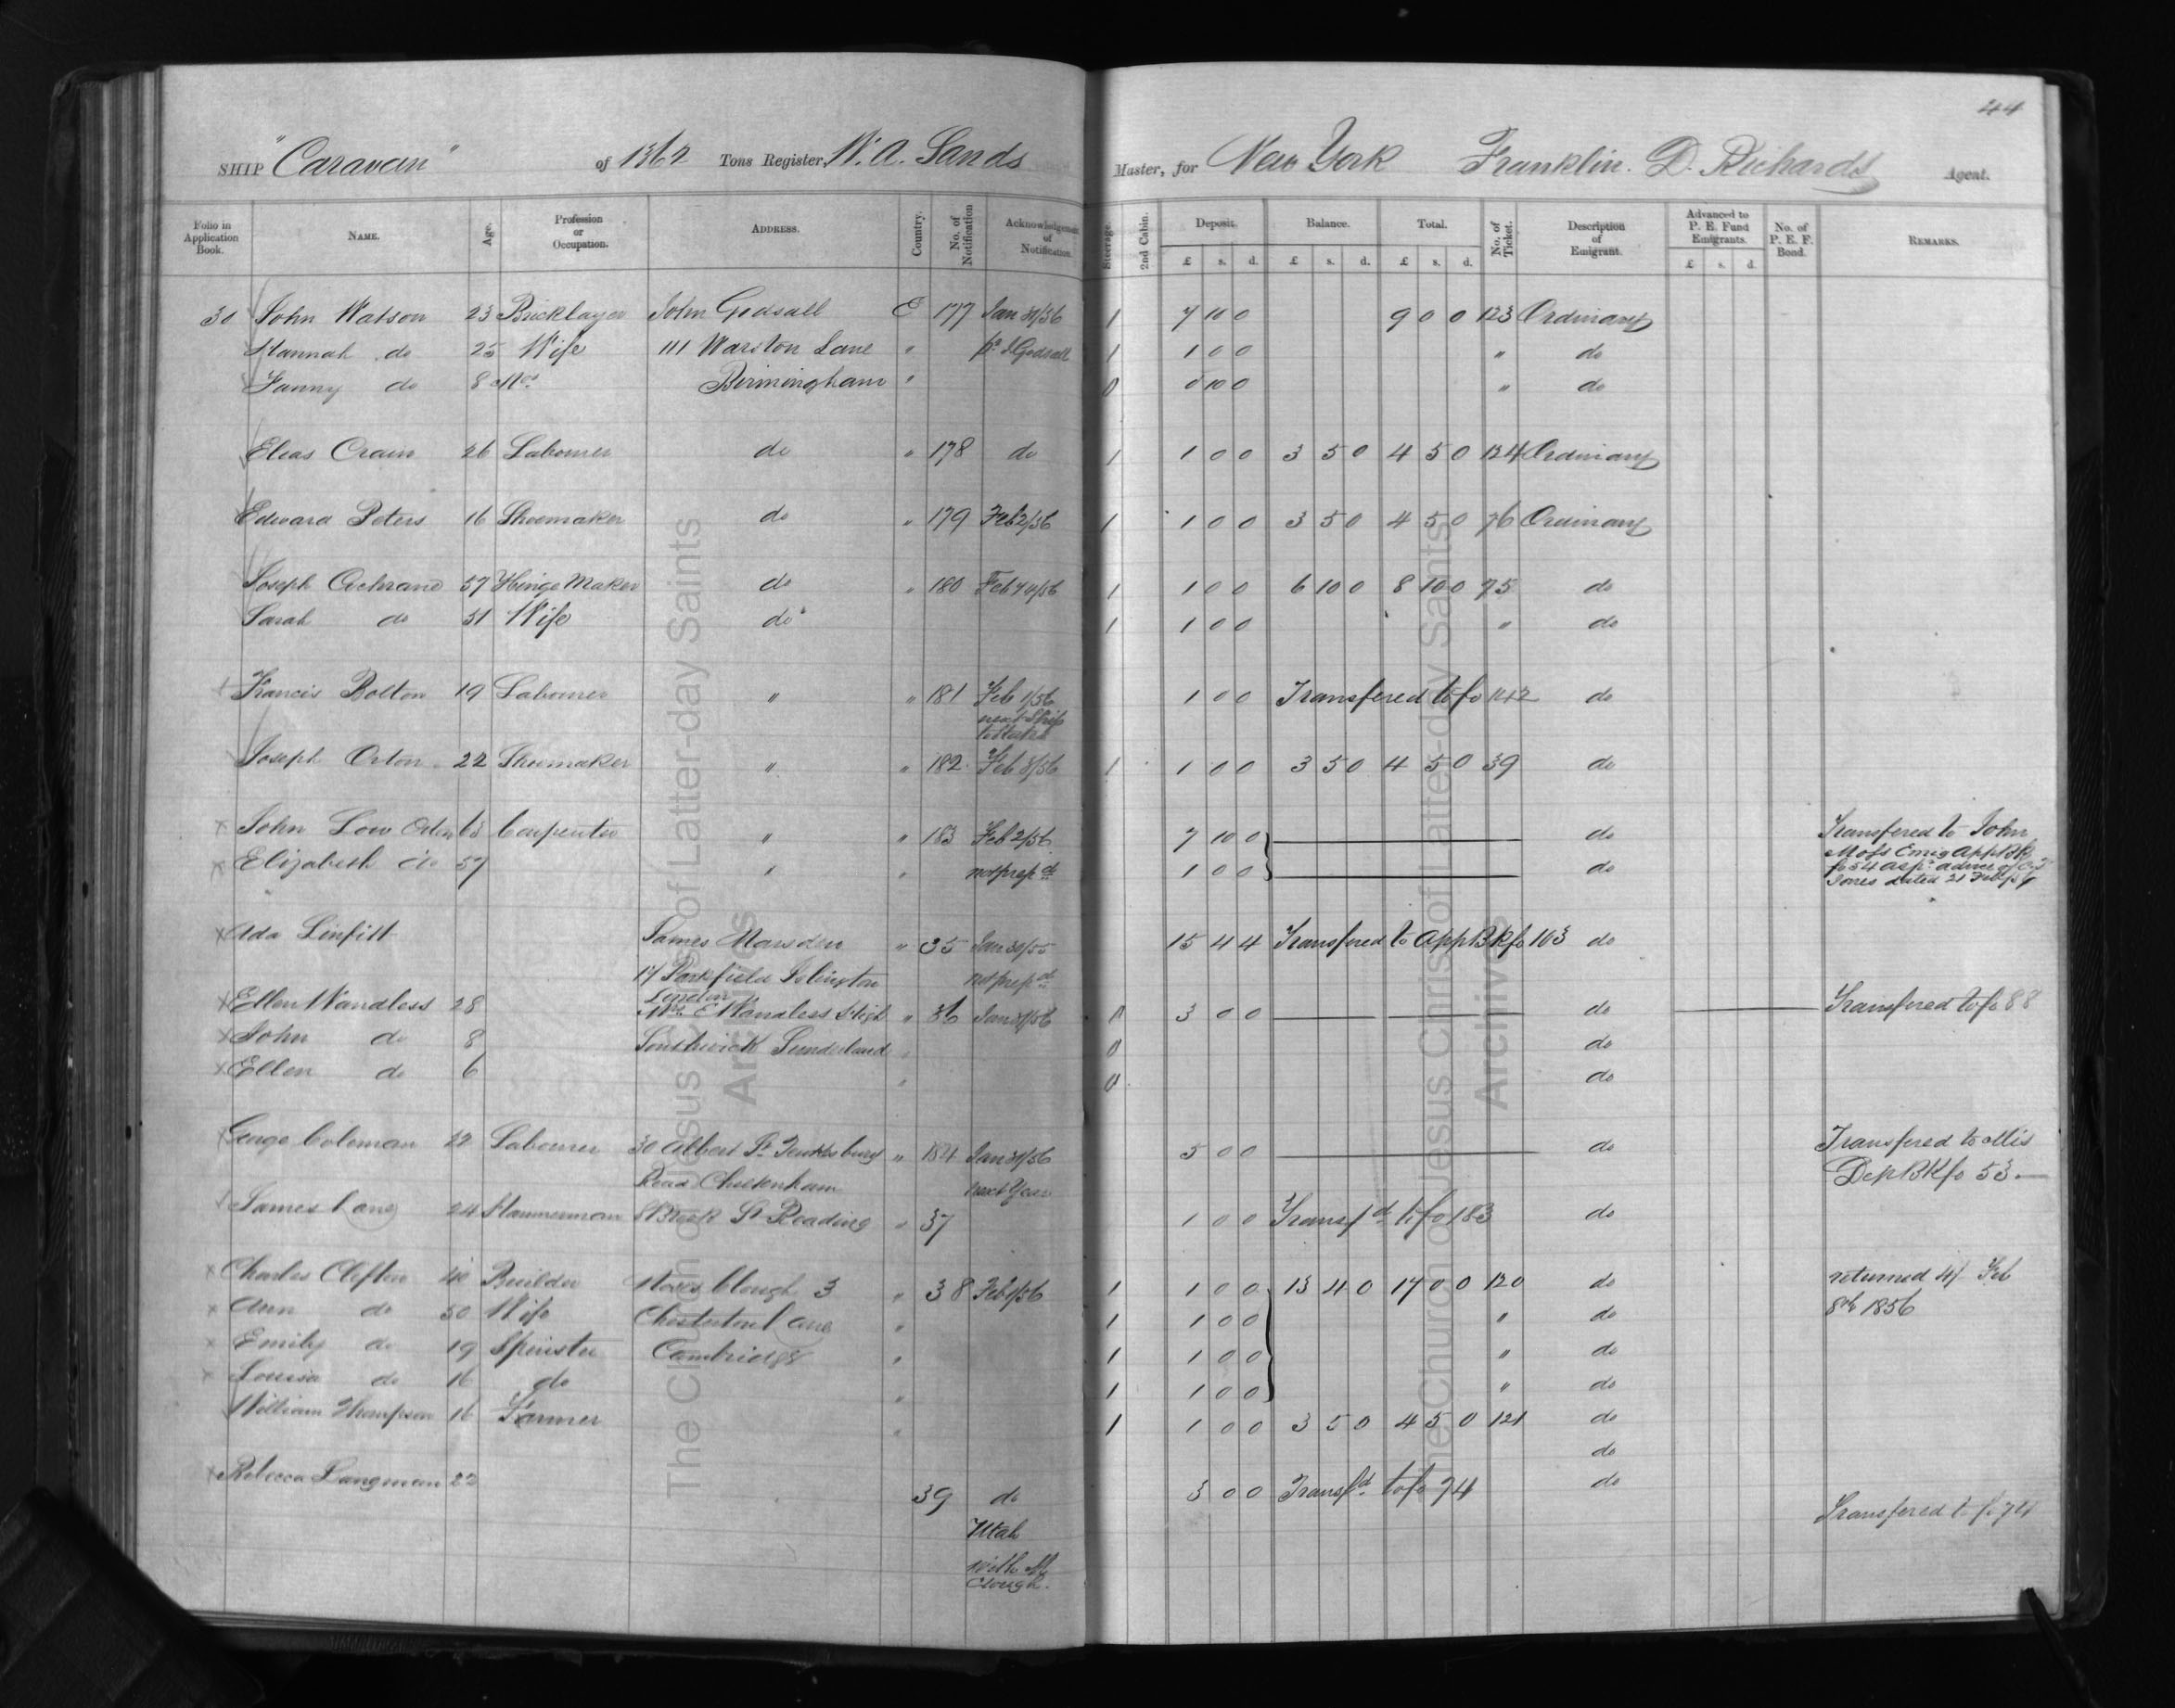 44
SHIP "Caravan" of 1362 Tons Register, W. A. Sands Master, for New York Franklin. D. Richards Agent.
Folio in Application Book. NAME. Age. Profession or Occupation. ADDRESS. Country. No. of Notification Acknowledgement of Notification. Steerage. 2nd Cabin. Deposit. Balance. Total. No. of Ticket. Description of Emigrant. Advanced to P. E. Fund Emigrants. No. of P. E. F. Bond. REMARKS.
£ s. d. £ s. d. £ s. d. £ s. d.
30 John Watson 23 Bricklayer John Godsall E 177 Jan 31/56 1 7 10 0 9 0 0 123 Ordinary
Hannah do 25 Wife 111 Warston Lane " pr J. Godsall 1 1 0 0 " do
Fanny do 8 Mos Birmingham " 0 0 10 0 " do
Elias Crain 26 Labourer do " 178 do 1 1 0 0 3 5 0 4 5 0 124 Ordinary
Edward Peters 16 Shoemaker do " 179 Feb 2/56 1 1 0 0 3 5 0 4 5 0 76 Ordinary
Joseph Cochrane 57 Hinge Maker do " 180 Feb 4/56 1 1 0 0 6 10 0 8 10 0 75 do
Sarah do 51 Wife do " 1 1 0 0 " do
Francis Bolton 19 Labourer " " 181 Feb 1/56 1 0 0 Transfered to fo 142 do
next Ship
Joseph Orton 22 Shoemaker " " 182 Feb 8/56 1 1 0 0 3 5 0 4 5 0 39 do
x John Low Orton 63 Carpenter " " 183 Feb 2/56 7 10 0 do Transfered to John
x Elizabeth do 57 " " not prepd 1 0 0 do Moss Emig App Bk
fo 54 as pr advice of
Jones dated 21 Feb
x Ada Linfitt James Marsden " 35 Jan 31/55 15 4 4 Transfered to App BK fo 103 do
17 Parkfield Islington not prepd
London
x Ellen Wandless 28 Mrs E Wandless High " 36 Jan 31/56 0 3 0 0 do Transfered to fo 88
x John do 8 Southwick Sunderland " 0 do
x Ellen do 6 " 0 do
George Coleman 22 Labourer 30 Albert St Tewksbury " 184 Jan 31/56 5 0 0 do Transfered to Mis
Road Cheltenham next Year Dep BK fo 53.
James Lang 24 Hammerman St Reading " 37 1 0 0 Transfd to fo 183 do
x Charles Clifton 40 Builder Moses Clough 3 " 38 Feb 1/56 1 1 0 0 13 4 0 17 0 0 120 do returned 4/ Feb
x Ann do 50 Wife Chesterton Lane " 1 1 0 0 " do 8th 1856
x Emily do 19 Spinster Cambridge " 1 1 0 0 " do
x Louisa do 16 do " 1 1 0 0 " do
William Thompson 16 Farmer " 1 1 0 0 3 5 0 4 5 0 121 do
do
x Rebecca Langman 22 39 do 3 0 0 Transfd to fo 74 do
Transfered to fo 74
Utah
with M
Clough.
The Church of Jesus Christ of Latter-day Saints
Archives
The Church of Jesus Christ of Latter-day Saints
Archives